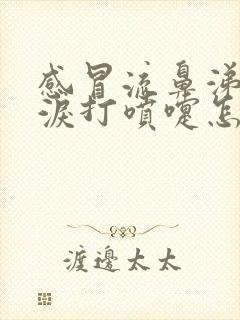 感冒流鼻涕
淚打噴嚏怎
渡邊太太